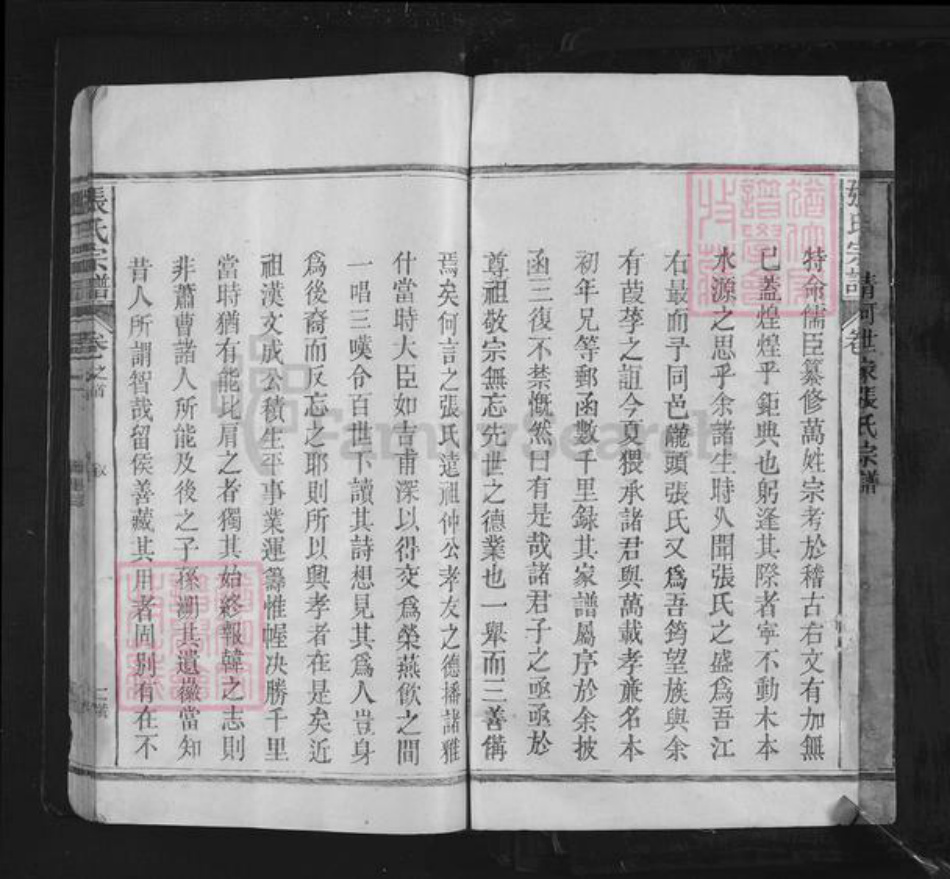 清河世家張氏宗譜
張氏宗譜
特命儒臣纂修萬姓宗考於稽古右文有加無
已葢煌煌乎鉅典也躬逢其際者寧不動木本
水源之思乎余諸生時久聞張氏之盛爲吾江
右最而予同邑龍頭張氏又爲吾筠望族與余
有葭莩之誼今夏猥承諸君與萬載孝亷名本
初年兄等郵函數千里録其家譜屬序於余披
函三復不禁慨然曰有是哉諸君子之亟亟於
尊祖敬宗無忘先世之德業也一舉而三善偹
焉矣何言之張氏遠祖仲公孝友之德播諸雅
什當時大臣如吉甫深以得交爲榮燕飲之間
一唱三嘆令百世下讀其詩想見其爲人豈身
爲後裔而反忘之耶則所以興孝者在是矣近
祖漢文成公積生平事業運籌惟幄决勝千里
當時猶有能比肩之者獨其始終報韓之志則
非蕭曹諸人所能及後之子孫溯其遺徽當知
昔人所謂智哉留侯善藏其用者固别有在不
張氏宗譜
卷之首
叙
FamilySearch